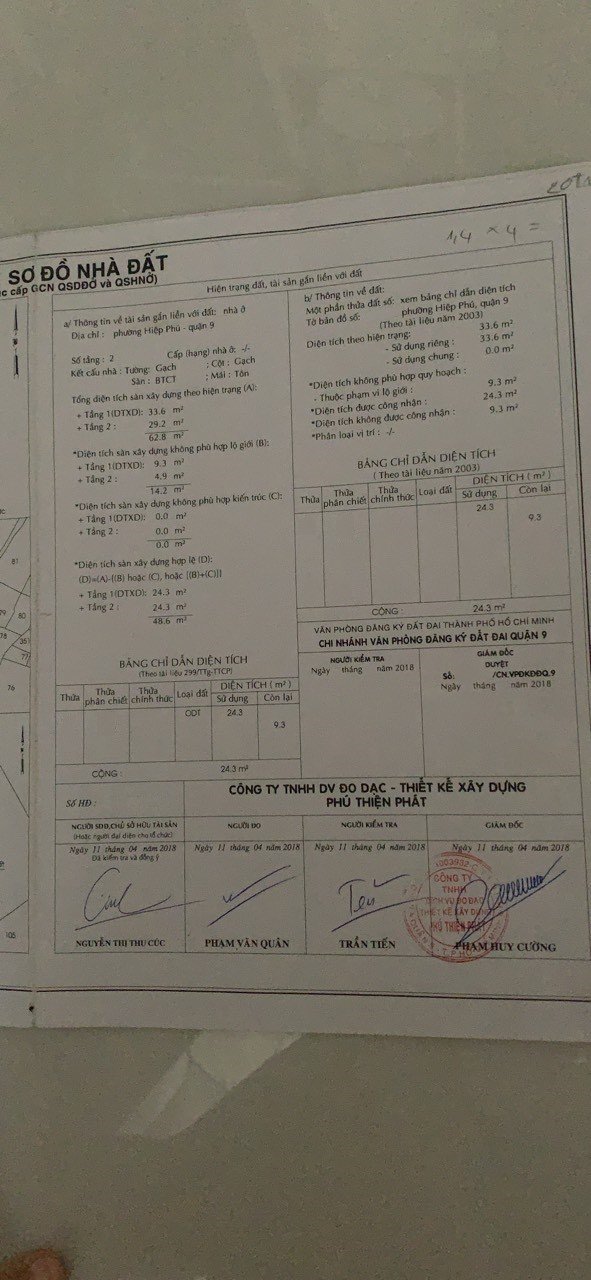 1,4 x 4 =
SƠ ĐỒ NHÀ ĐẤT
cấp GCN QSDĐỞ và QSHNỞ)
Hiện trạng đất, tài sản gắn liền với đất
a/ Thông tin về tài sản gắn liền với đất: nhà ở
Địa chỉ : phường Hiệp Phú - quận 9
Số tầng : 2 Cấp (hạng) nhà ở: -/-
Kết cấu nhà : Tường: Gạch ; Cột : Gạch
Sàn : BTCT ; Mái : Tôn
Tổng diện tích sàn xây dựng theo hiện trạng (A):
+ Tầng 1(DTXD): 33.6 m²
+ Tầng 2 : 29.2 m²
62.8 m²
*Diện tích sàn xây dựng không phù hợp lộ giới (B):
+ Tầng 1(DTXD): 9.3 m²
+ Tầng 2 : 4.9 m²
14.2 m²
*Diện tích sàn xây dựng không phù hợp kiến trúc (C):
+ Tầng 1(DTXD): 0.0 m²
+ Tầng 2 : 0.0 m²
0.0 m²
*Diện tích sàn xây dựng hợp lệ (D):
(D)=(A)-{(B) hoặc (C), hoặc [(B)+(C)]}
+ Tầng 1(DTXD): 24.3 m²
+ Tầng 2 : 24.3 m²
48.6 m²
BẢNG CHỈ DẪN DIỆN TÍCH
(Theo tài liệu 299/TTg-TTCP)
Thửa Thửa phân chiết Thửa chính thức Loại đất DIỆN TÍCH ( m² )
Sử dụng Còn lại
ODT 24.3
9.3
CỘNG : 24.3 m²
b/ Thông tin về đất:
Một phần thửa đất số: xem bảng chỉ dẫn diện tích
Tờ bản đồ số: phường Hiệp Phú, quận 9
(Theo tài liệu năm 2003)
Diện tích theo hiện trạng: 33.6 m²
- Sử dụng riêng : 33.6 m²
- Sử dụng chung : 0.0 m²
*Diện tích không phù hợp quy hoạch :
- Thuộc phạm vi lộ giới : 9.3 m²
*Diện tích được công nhận : 24.3 m²
*Diện tích không được công nhận : 9.3 m²
*Phân loại vị trí : -/-
BẢNG CHỈ DẪN DIỆN TÍCH
( Theo tài liệu năm 2003)
Thửa Thửa phân chiết Thửa chính thức Loại đất DIỆN TÍCH ( m² )
Sử dụng Còn lại
24.3
9.3
CỘNG : 24.3 m²
VĂN PHÒNG ĐĂNG KÝ ĐẤT ĐAI THÀNH PHỐ HỒ CHÍ MINH
CHI NHÁNH VĂN PHÒNG ĐĂNG KÝ ĐẤT ĐAI QUẬN 9
NGƯỜI KIỂM TRA
Ngày tháng năm 2018
GIÁM ĐỐC
DUYỆT
Số: /CN.VPĐKĐĐQ.9
Ngày tháng năm 2018
81
79
80
78
35
77
76
105
Số HĐ:
CÔNG TY TNHH DV ĐO ĐẠC - THIẾT KẾ XÂY DỰNG
PHÚ THIỆN PHÁT
NGƯỜI SDĐ,CHỦ SỞ HỮU TÀI SẢN
(Hoặc người đại diện cho tổ chức)
Ngày 11 tháng 04 năm 2018
Đã kiểm tra và đồng ý
NGUYỄN THỊ THU CÚC
NGƯỜI ĐO
Ngày 11 tháng 04 năm 2018
PHẠM VĂN QUÂN
NGƯỜI KIỂM TRA
Ngày 11 tháng 04 năm 2018
TRẦN TIẾN
GIÁM ĐỐC
Ngày 11 tháng 04 năm 2018
CÔNG TY
TNHH
DỊCH VỤ ĐO ĐẠC
THIẾT KẾ XÂY DỰNG
PHÚ THIỆN PHÁT
PHẠM HUY CƯỜNG